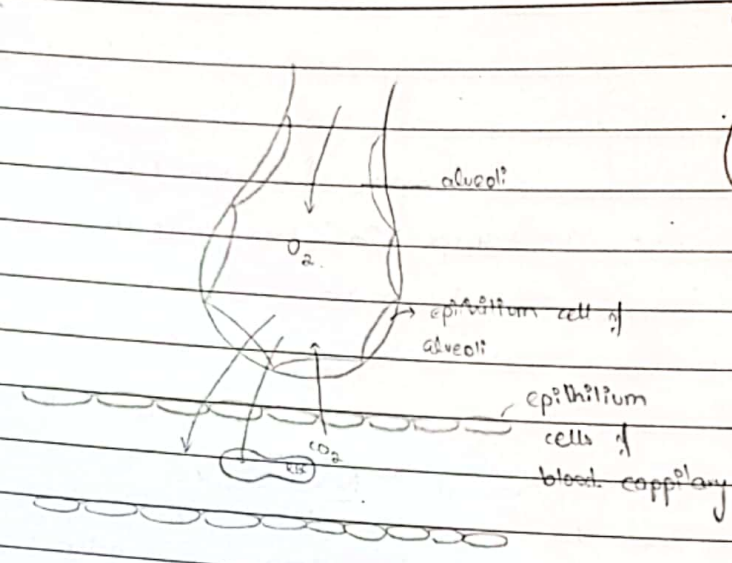 alveoli
O2
epithilium cell of
alveoli
epithilium
cells of
CO2
blood cappilary